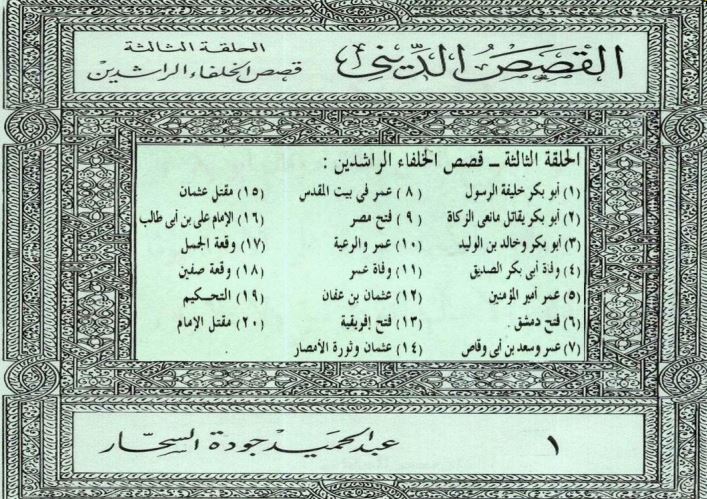 القصص الديني
الحلقة الثالثة
قصص الخلفاء الراشدين
الحلقة الثالثة – قصص الخلفاء الراشدين :
(١) أبو بكر خليفة الرسول
(٢) أبو بكر يقاتل مانعى الزكاة
(٣) أبو بكر وخالد بن الوليد
(٤) وفاة أبى بكر الصديق
(٥) عمر أمير المؤمنين
(٦) فتح دمشق
(٧) عمر وسعد بن أبى وقاص
(٨) عمر فى بيت المقدس
(٩) فتح مصر
(١٠) عمر والرعية
(١١) وفاة عمر
(١٢) عثمان بن عفان
(١٣) فتح إفريقية
(١٤) عثمان وثورة الأمصار
(١٥) مقتل عثمان
(١٦) الإمام على بن أبى طالب
(١٧) وقعة الجمل
(١٨) وقعة صفين
(١٩) التحكيم
(٢٠) مقتل الإمام
١
عبد الحميد جودة السحار